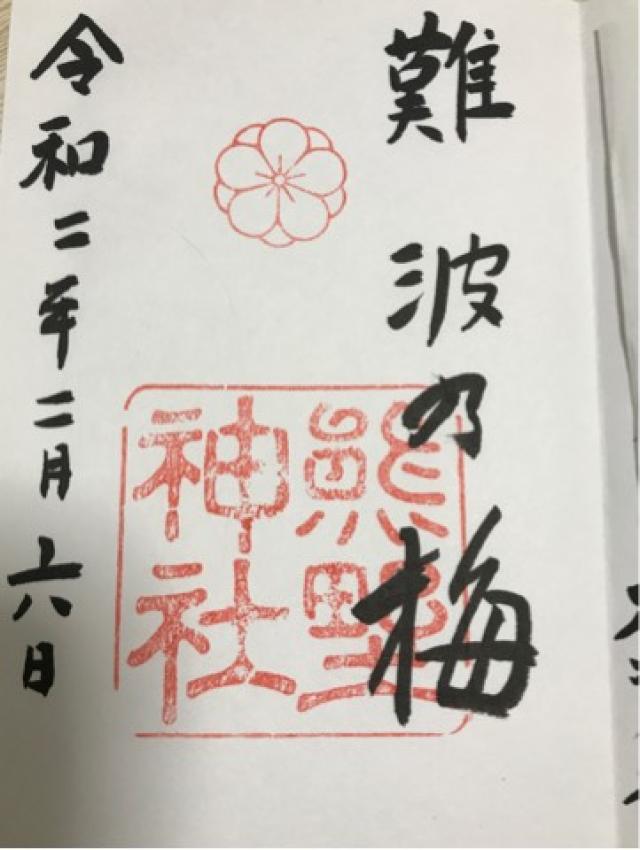 難波の梅
熊野
神社
令和二年二月六日